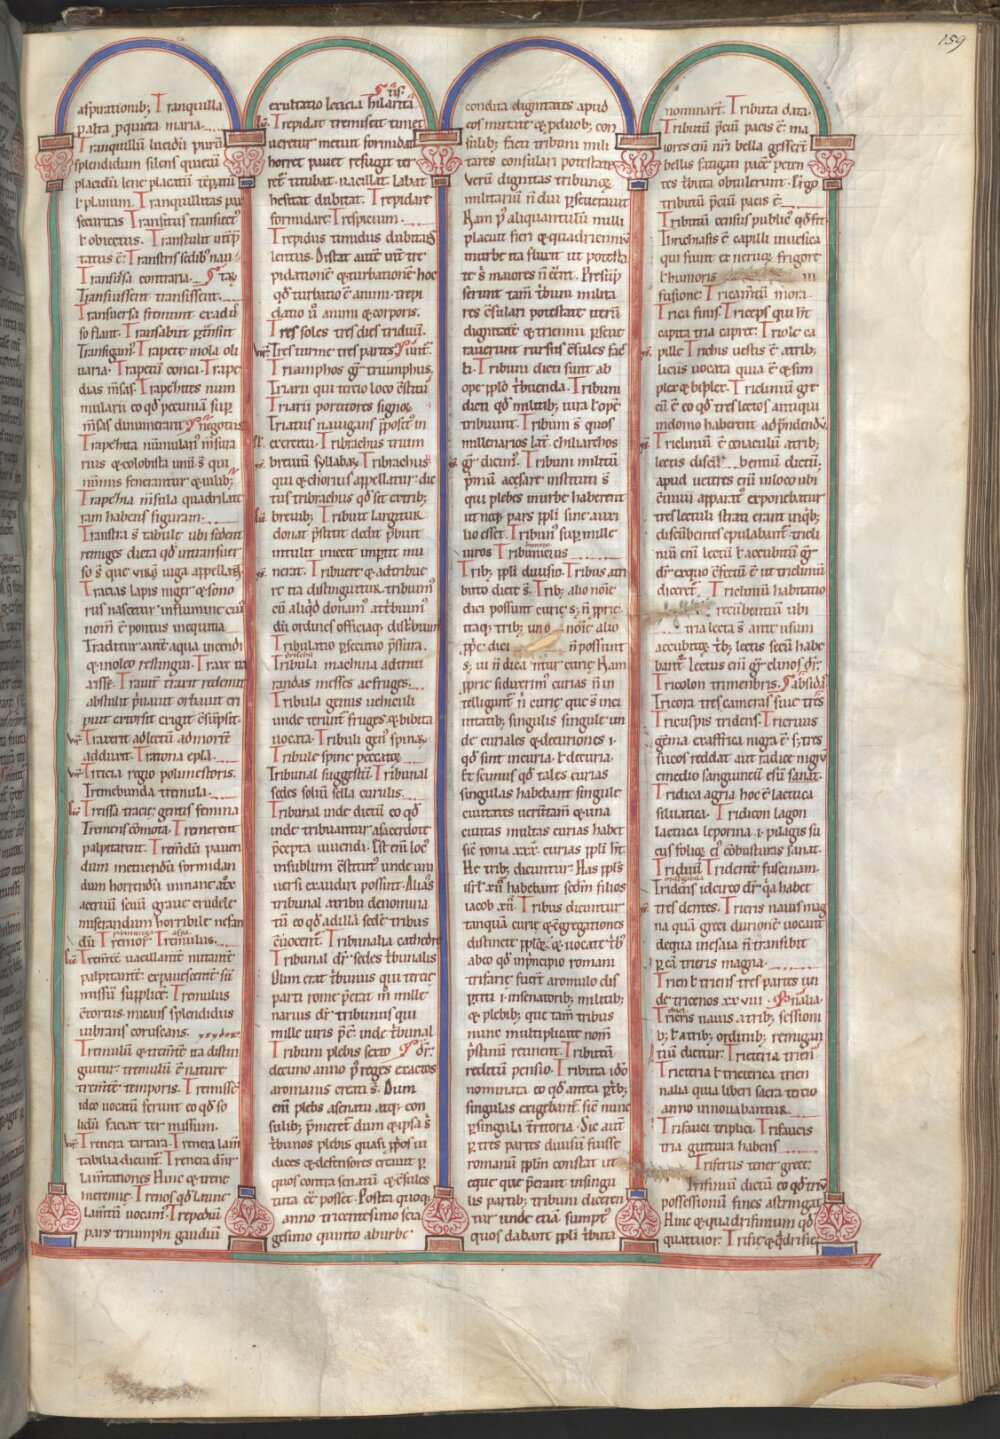 159
aspirationib; Tranquilla
palta pquieta maria
Tranquillū lucidū purū
splendidum silens quietū
placidū lene placatū
ł planum. Tranquillitas pax
securitas Transitus transiect
ł obiectus. Transtulit
tatus ē. Transtris sedib; nau
Transversa contraria.
Transiuissent transissent.
Transuersa fremunt ex aduer
so flant. Transabiit
Transfigam. Trapete mola oli
uaria. Trapetū conica. Trape
dias msas. Trapezites num
mularii eo qd pecuniam sup
msas dinumerant. negotus
Trapezita nūmulari msura
rius & colobista unū s qui
nūmis fenerantur & uilib;
Trapezia msula quadrilate
ram habens figuram.
Transtra s tabule ubi sedent
remiges dicta qd intransuer
so s que uirg uiga appellat
Tracias lapis niger & sono
rus nascitur influmine cui
nom ē pontus inequitia
Traditur aute aqua incendi
& inoleo restingui. Traxe
xisse. Trauit traxit redemit
abstulit priuauit orbauit eri
puit extorsit exigit
Traxerit adlectū admonit
adduxit. Tratoria epla.
Treicia regio polimestoris.
Tremebunda tremula.
Treissa tracie gentis femina
Tremens cōmota. Tremerent
palpitarent. Tremēdū pauen
dum metuendū formidan
dum horrendū inmane atrx
aceruū seuū graue crudele
miserandum horribile nefan
dū. Tremor. Tremulus.
Tremēt uacillant nutant
palpitant. expauescent sū
missim supplicē. Tremulus
cōtortus micans splendidus
uibrans coruscans.
Tremulū & tremēte ita distin
guitur. tremulū ē nature
tremēte temporis. Tremisse
ideo uocatū ferunt eo qd so
lidū faciat ter missum.
Trenera tartara. Trenera lam
tabilia dicunt. Trenera dnr
lamtationes Hinc & trene
ieremie. Trenos qd latine
lamtū uocam. Trepediū
pars triumphi gaudiū
exultatio leticia hilarita
Trepidat tremiscit timet
ueretur metuit formidat
horret pauet refugit ter
ret titubat. uacillat. Labat
hesitat dubitat. Trepidare
formidare. Trespicium.
Trepidus timidus dubitans
lentus. Distat aute int tre
pidatione & turbatione hoc
qd turbatio ē animi. trepi
datio ū animi & corporis.
Tres soles tres dies triduū.
Tres turme tres partes
Triamphos gr triumphus.
Triarii qui tercio loco
Triarii portitores signor
Triatus nauigans ppositus in
exercitu. Tribrachus trium
breuiū syllabar. Tribrachus
qui & chorius appellatur. dic
tus tribrachus qd sit extrib;
breuib; Tribuit largitur
donat prestitit dedit prebuit
intulit iniecit inptit mu
nerat. Tribuere & adtribue
re ita distinguitur. tribuim
cū aliqd donam. attribuim
dū ordines officiaq; distribuim
Tribulatio psecutio pssura.
Tribula machina adtritu
randas messes ac fruges.
Tribula genus uehiculi
unde terunt fruges & bibita
uocata. Tribuli gen spinar
Tribule spine peccatq
Tribunal suggestū. Tribunal
sedes soliū sella curulis.
Tribunal inde dictū eo qd
inde tribuantur a sacerdote
pcepta uiuendi. Est eni loc
in sublimi cōstitut unde uni
uersi exaudiri possint. Alias
tribunal a tribu denomina
tū eo qd ad illā sede tribus
cōuocent. Tribunalia cathedre
Tribunal dr sedes tribunalis
Dum erat tribunus qui tercie
parti rome perat in mille
narius dr tribunus qui
mille uiris pē. inde tribunal
Tribuni plebis sexto
decimo anno p reges exactos
a romanis creati s. Dum
enī plebs a senatu atq; con
sulib; pmeret dum & ipsa s
tbunos plebis quasi ppos iu
dices & defensores creauit p
quos contra senatū & cōsules
tuta cē posset. Postea quoq;
anno tricentesimo sexa
gesimo quinto ab urbe
condita dignitates apud
eos mutate & p duob; con
sulib; facti tribuni mili
tares consulari potestate
Verū dignitas tribunoq;
militariū ñ diu perseuerauit
Nam p aliquantulū nulli
placuit fieri & quadrienniū
in urbe ita fluxit ut potesta
te s maiores ñ cent. Presūp
serunt tam tbuni milita
res cōsulari potestate iterū
dignitatē & trienniu pseue
rauerunt rursus cōsules fac
ti. Tribuni dicti sunt ab
ope pplo tbuenda. Tribuni
dicti qd militib; iura ł opē
tribuunt. Tribuni s quos
millenarios lat chiliarchos
gr dicim. Tribuni militū
prmū a cesare instituti s
qui plebes in urbe haberent
ut neq; pars ppli sine auxi
lio esset. Tribuni sup mille
uiros Tribunicius
Trib; ppli diuisio. Tribus atri
buto dicte s. Trib; alio noie
dici possunt curię s; ñ pprie.
itaq; trib; uno noie alio
ppe dici ñ possunt
s; in ñ dicantur curię Nam
pprie siduerim curias ñ in
telligunt ñ curię que s inci
uitatib; singulis singule un
de curiales & decuriones i.
qd sint in curia ł decuria.
Et scimus qd tales curias
singulas habebant singule
ciuitates ueruntam & una
ciuitas multas curias habet
sic roma xxx. curias ppli ht.
He trib; dicuntur. Has ppls
isrl xii habebant sedm filios
iacob xii. Tribus dicuntur
tanqua curię & cōgregationes
distincte pploq; & uocate tb
ab eo qd inprincipio romani
trifarię fuert a romulo dis
pertiti i. in senatorib; militib;
& plebib; que tam tribus
nunc multiplicate nom
pstinum retinent. Tributū
redditū pensio. Tributa ido
nominata eo qd antea prib;
singulas exigebant. sic nunc
p singula territoria. Sic aut
p tres partes diuisim fuisse
romanū pplm constat ut
eęque que perant in singu
lis partib; tribuni dicerēn
tur unde etia sumpt
quos dabant ppli tbuta
nominart. Tributa data.
Tributū pciū pacis ē. ma
iores eni nri bella gesserūt
bellis fatigati pace peten
tes tbuta obtulerunt. Ergo
tributū pciū pacis ē.
Tributū census public qd fit
Trichiasis ē capilli inuesica
qui fiunt ex neruoq; frigore
ł humoris in
fusione. Tricamtū mora
Trica funis. Triceps qui ht
capita tria capret. Tricle ca
pille Trichis uestis ē a trib;
liciis uocata quia ē & sim
plex & biplex. Tricliniū gre
cū ē eo qd tres lectos antiqui
indomo haberent adprndendū
Tricliniū ē cenaculū a trib;
lectis discūbentiū dictū;
apud ueteres eni inloco ubi
cōuiuii apparat exponebatur
tres lectuli strati erant inqb;
discūbentes epulabant. tricli
niū eni lectū ł accubitū gr
dr exquo effectū ē ut triclinū
diceret. Tricliniū habitatio
recūbentium ubi
tria lecta s ante usum
accubitoq; tb; lectis secti habe
bant. lectus eni gr clinos dr.
Tricolon trimenbris.
Tricora tres cameras siue tres
Tricuspis tridens. Trierius
gema ex affrica nigra ē s; tres
sucos reddat aut radice nigrū
e medio sanguineū esū sanat
Tridica agria hoc ē lactuca
siluatica. Tridicon lagon
lactuca leporina i. pilagis su
cus folioq; ei cōbusturas sanat.
Triduū Tridente fuscinam.
Tridens idcirco dr qa habet
tres dentes. Trieris nauis mag
na quā greci durione uocant
de qua in esaia ñ transibit
p eā trieris magna.
Trien ł triens tres partes un
de tricenos xx viii.
Trieris nauis a trib; session
b; ł a trib; ordinib; remigan
tiū dicitur. Trieteria trien
Trieteria ł trieterica trien
nalia quia liberi sacra tercio
anno innouabantur.
Trifauces triplici. Trifaucis
tria guttura habens
Triferus tener grece;
Trifiniū dictū eo qd triū
possessionū fines astringat
Hinc & quadrifiniū qd
quattuor. Trifit & qdrifit